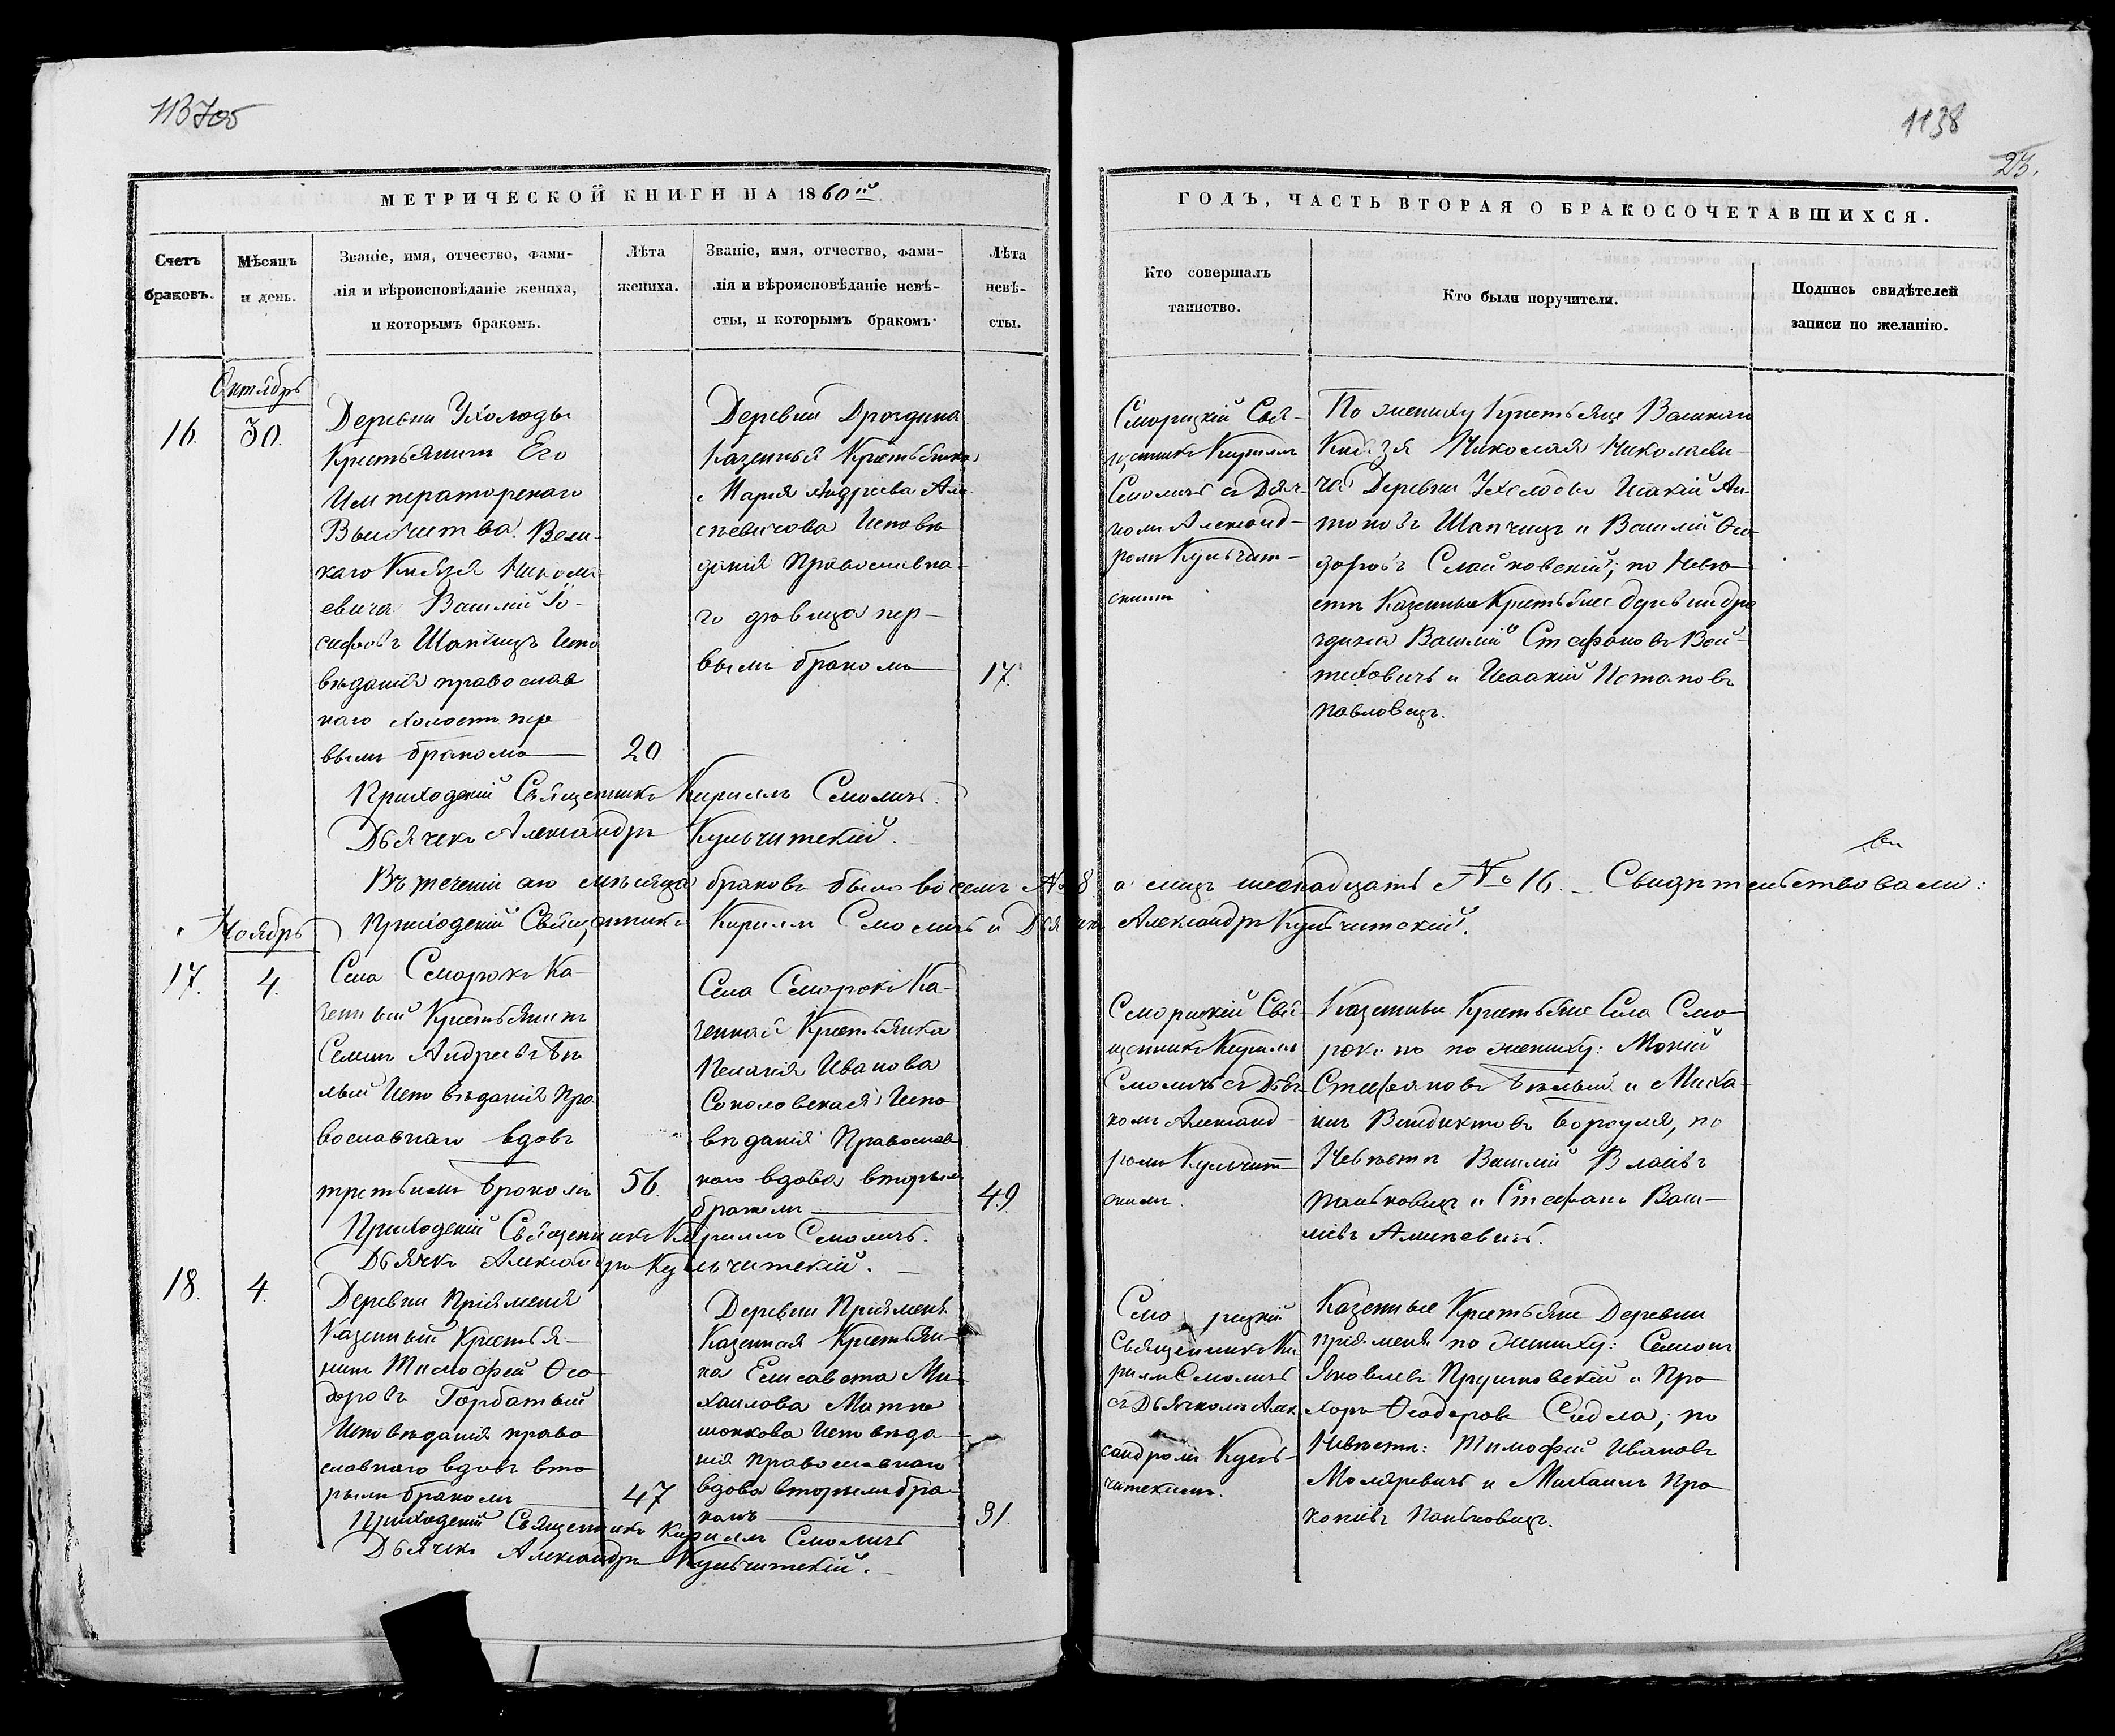 1138
23.
МЕТРИЧЕСКОЙ КНИГИ НА 1860ій
ГОДЪ, ЧАСТЬ ВТОРАЯ О БРАКОСОЧЕТАВШИХСЯ.
Счетъ
браковъ.
Мѣсяцъ
и день.
Званіе, имя, отчество, фами-
лія и вѣроисповѣданіе жениха,
и которымъ бракомъ.
Лѣта
жениха.
Званіе, имя, отчество, фами-
лія и вѣроисповѣданіе невѣ-
сты, и которымъ бракомъ.
Лѣта
невѣ-
сты.
Кто совершалъ
таинство.
Кто были поручители.
Подпись свидѣтелей
записи по желанію.
Октябрь
16.
30.
Деревни Ухолоды
Крестьянинъ Его
Императорскаго
Высочества Вели-
каго Князя Никола
евича Василій Іо-
сифовъ Шапчицъ Испо
вѣданія православ
наго холостъ пер
вымъ бракомъ
20
Деревни Дроздина
Казенная Крестьянка
Марія Андреева Али
спевичова Исповѣ
данія Православна-
го дѣвица пер-
вымъ бракомъ
17.
Сморицкій Свя-
щенникъ Кириллъ
Смоличъ съ Дьяч-
комъ Александ-
ромъ Кульчит-
скимъ
По жениху Крестьяне Великаго
Князя Николая Николаеви-
ча Деревни Ухолоды Исакій Ан-
тоновъ Шапчицъ и Василій Ѳео
доровъ Слайковскій; по Невѣ-
стѣ Казенные Крестьяне деревни Дро
здина Василій Стефановъ Вой-
тиховичъ и Исаакій Потаповъ
Павловецъ.
Приходскій Священникъ Кириллъ Смоличъ.
Дьячекъ Александръ Кульчитскій.
Въ теченіи сего мѣсяца браковъ было восемь № 8 а всѣхъ шеснадцать № 16. Свидѣтельствовали:
Приходскій Священникъ Кириллъ Смоличъ и Дьячекъ Александръ Кульчитскій.
Ноябрь
17.
4.
Села Сморокъ Ка-
зенный Крестьянинъ
Семенъ Андреевъ Бѣ
лый Исповѣданія Пра
вославнаго вдовъ
третьимъ бракомъ
56.
Села Сморокъ Ка-
зенная Крестьянка
Пелагія Иванова
Соколовская Испо
вѣданія Православ
наго вдова вторымъ
бракомъ
49.
Сморицкій Свя-
щенникъ Кириллъ
Смоличъ съ Дьяч
комъ Александ
ромъ Кульчит
скимъ.
Казенные Крестьяне Села Смо
рокъ по по жениху: Мокій
Стефановъ Бѣлый и Миха-
илъ Бородуля, по
Невѣстѣ Василій Власовъ
Паньковецъ и Стефанъ Васи-
ліевъ
Приходскій Священникъ Кириллъ Смоличъ.
Дьячекъ Александръ Кульчитскій.
18.
4.
Деревни Пріяменя
Казенный Крестья-
нинъ Тимофей Ѳео
доровъ Горбатый
Исповѣданія право
славнаго вдовъ вто
рымъ бракомъ
47
Деревни Пріяменя
Казенная Крестьян-
ка Елисавета Ми-
хаилова Матю
шонкова Исповѣда-
нія православнаго
вдова вторымъ бра-
комъ
31.
Смо рицкій
Священникъ Ки
риллъ Смоличъ
съ Дьячкомъ Алек
сандромъ Куль-
читскимъ.
Казенные Крестьяне Деревни
Пріяменя по жениху: Семенъ
Яковлевъ Прушковскій и Про
хоръ Ѳеодоровъ Сидла; по
Невѣстѣ: Тимофей Ивановъ
Моляревичъ и Михаилъ Про
копіевъ Паньковецъ.
Приходскій Священникъ Кириллъ Смоличъ
Дьячекъ Александръ Кульчитскій.